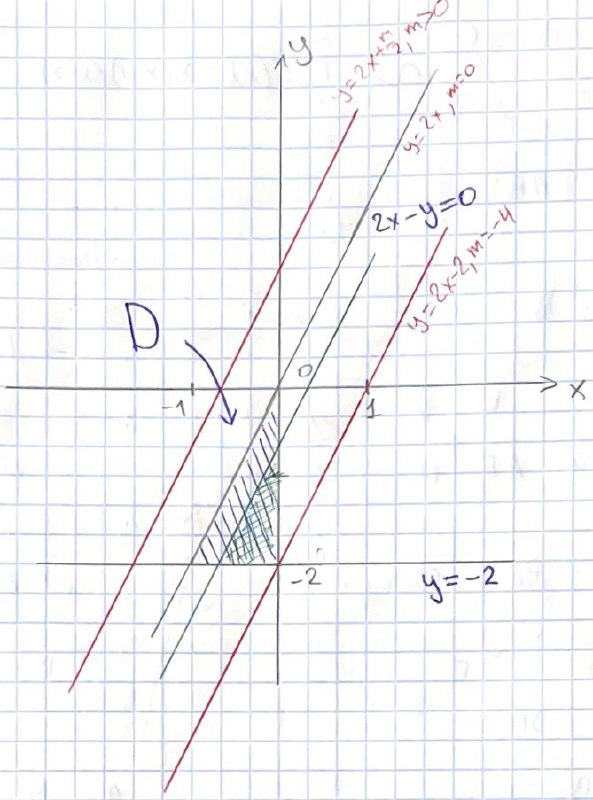 y
y=2x+m/2, m>0
y=2x, m=0
2x-y=0
y=2x-2, m=-4
D
0
x
-1
1
-2
y=-2